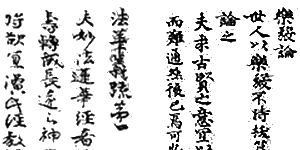 樂毅論
世人以樂毅不時拔
論之
夫求古賢之意宜以
而難通然後已焉可
法華義疏第一
夫妙法蓮華經者
壽轉成長遠之神
将欲宜演此經教